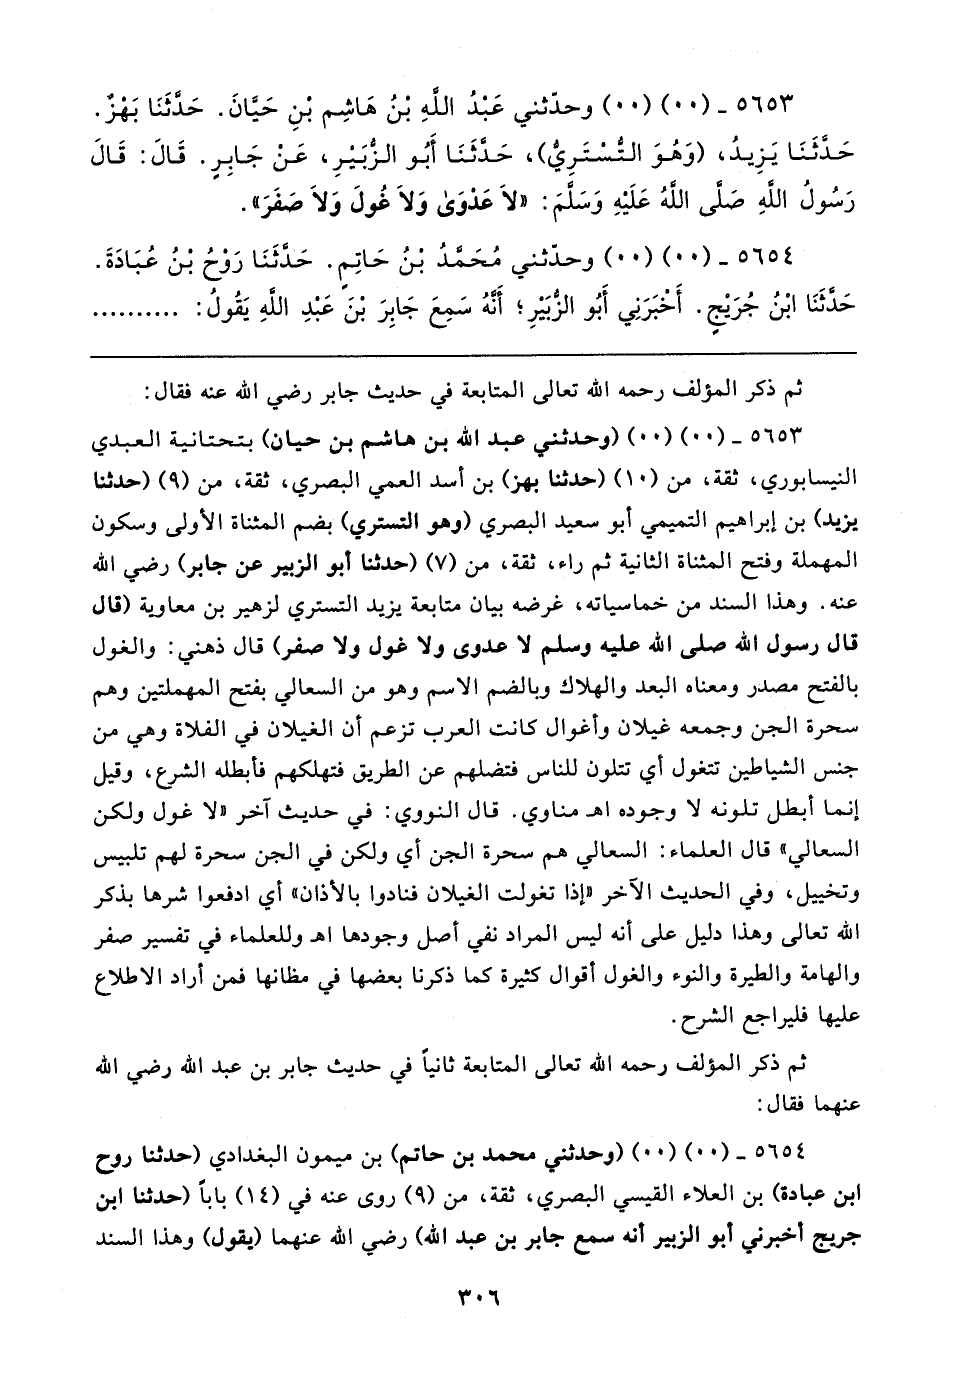 ٥٦٥٣ ـ (٠٠) (٠٠) وحدّثني عَبْدُ اللَّهِ بْنُ هَاشِمِ بْنِ حَيَّانَ. حَدَّثَنَا بَهْزٌ.
حَدَّثَنَا يَزِيدُ، (وَهُوَ التُّسْتَرِيُّ)، حَدَّثَنَا أَبُو الزُّبَيْرِ، عَنْ جَابِرٍ. قَالَ: قَالَ
رَسُولُ اللَّهِ صَلَّى اللَّهُ عَلَيْهِ وَسَلَّمَ: «لاَ عَدْوَىٰ وَلاَ غُولَ وَلاَ صَفَرَ».
٥٦٥٤ ـ (٠٠) (٠٠) وحدّثني مُحَمَّدُ بْنُ حَاتِمٍ. حَدَّثَنَا رَوْحُ بْنُ عُبَادَةَ.
حَدَّثَنَا ابْنُ جُرَيْجٍ. أَخْبَرَنِي أَبُو الزُّبَيْرِ؛ أَنَّهُ سَمِعَ جَابِرَ بْنَ عَبْدِ اللَّهِ يَقُولُ: ..........
ثم ذكر المؤلف رحمه الله تعالى المتابعة في حديث جابر رضي الله عنه فقال:
٥٦٥٣ ـ (٠٠) (٠٠) (وحدثني عبد الله بن هاشم بن حيان) بتحتانية العبدي
النيسابوري، ثقة، من (١٠) (حدثنا بهز) بن أسد العمي البصري، ثقة، من (٩) (حدثنا
يزيد) بن إبراهيم التميمي أبو سعيد البصري (وهو التستري) بضم المثناة الأولى وسكون
المهملة وفتح المثناة الثانية ثم راء، ثقة، من (٧) (حدثنا أبو الزبير عن جابر) رضي الله
عنه. وهذا السند من خماسياته، غرضه بيان متابعة يزيد التستري لزهير بن معاوية (قال
قال رسول الله صلى الله عليه وسلم لا عدوى ولا غول ولا صفر) قال ذهني: والغول
بالفتح مصدر ومعناه البعد والهلاك وبالضم الاسم وهو من السعالي بفتح المهملتين وهم
سحرة الجن وجمعه غيلان وأغوال كانت العرب تزعم أن الغيلان في الفلاة وهي من
جنس الشياطين تتغول أي تتلون للناس فتضلهم عن الطريق فتهلكهم فأبطله الشرع، وقيل
إنما أبطل تلونه لا وجوده اهـ مناوي. قال النووي: في حديث آخر «لا غول ولكن
السعالي» قال العلماء: السعالي هم سحرة الجن أي ولكن في الجن سحرة لهم تلبيس
وتخييل، وفي الحديث الآخر «إذا تغولت الغيلان فنادوا بالأذان» أي ادفعوا شرها بذكر
الله تعالى وهذا دليل على أنه ليس المراد نفي أصل وجودها اهـ وللعلماء في تفسير صفر
والهامة والطيرة والنوء والغول أقوال كثيرة كما ذكرنا بعضها في مظانها فمن أراد الاطلاع
عليها فليراجع الشرح.
ثم ذكر المؤلف رحمه الله تعالى المتابعة ثانياً في حديث جابر بن عبد الله رضي الله
عنهما فقال:
٥٦٥٤ ـ (٠٠) (٠٠) (وحدثني محمد بن حاتم) بن ميمون البغدادي (حدثنا روح
ابن عبادة) بن العلاء القيسي البصري، ثقة، من (٩) روى عنه في (١٤) باباً (حدثنا ابن
جريج أخبرني أبو الزبير أنه سمع جابر بن عبد الله) رضي الله عنهما (يقول) وهذا السند
٣٠٦